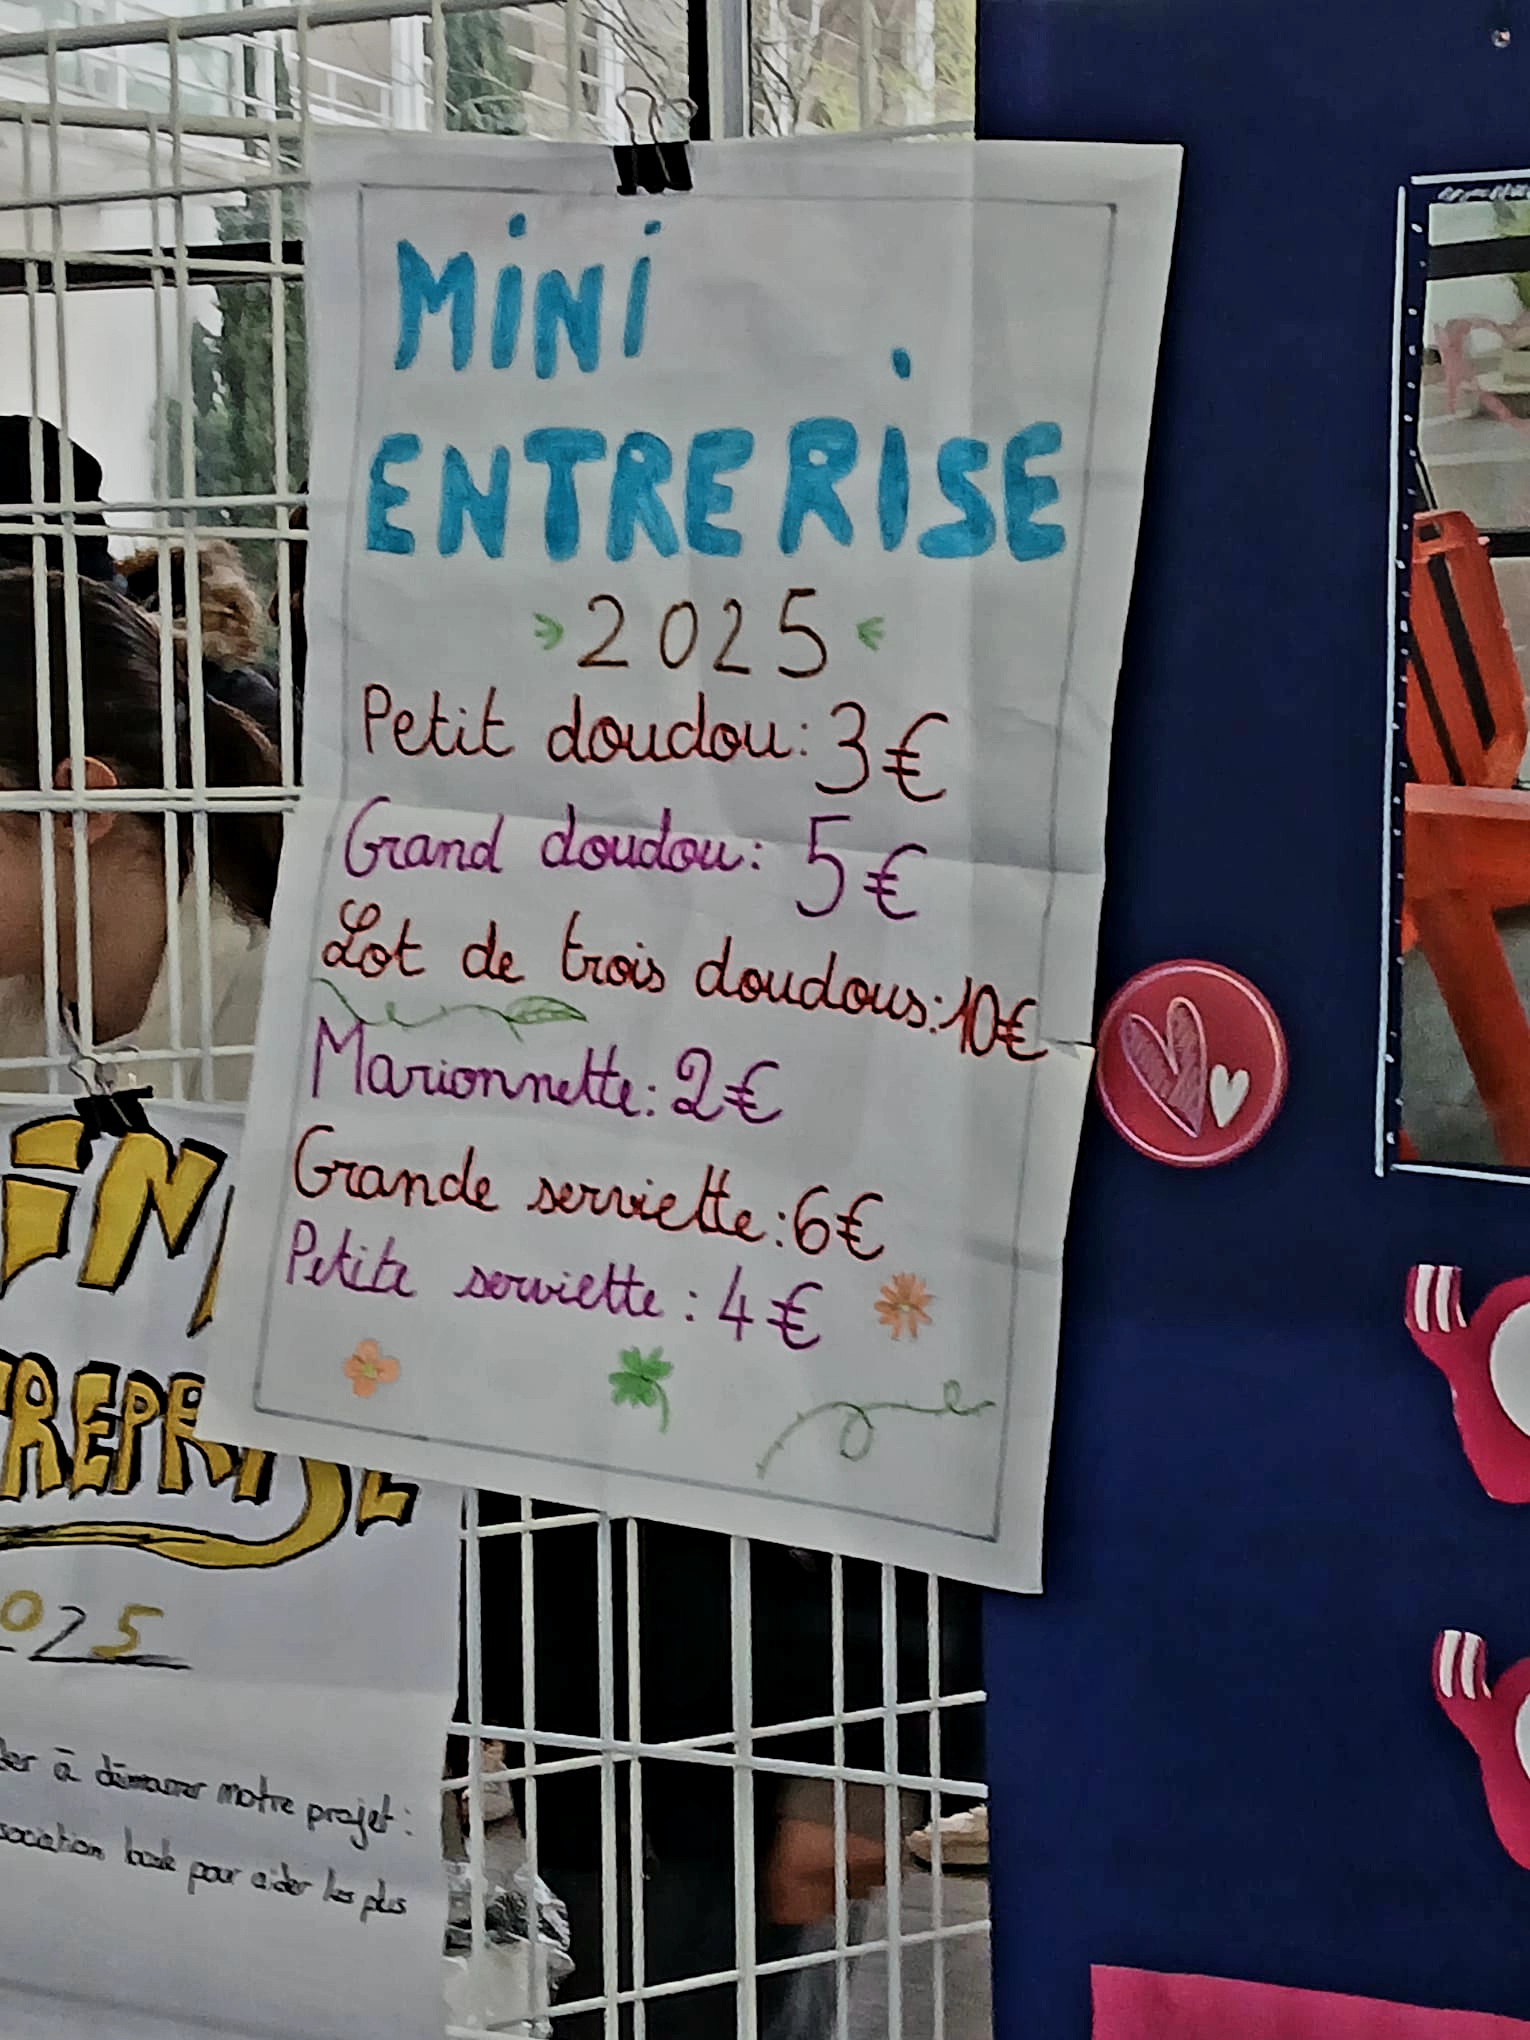 MiNi
ENTRERiSE
2025
Petit doudou: 3€
Grand doudou: 5€
Lot de trois doudous: 10€
Marionnette: 2€
Grande serviette: 6€
Petite serviette: 4€
iNi
TREPRISE
2025
der à démarrer notre projet:
sociation locale pour aider les plus